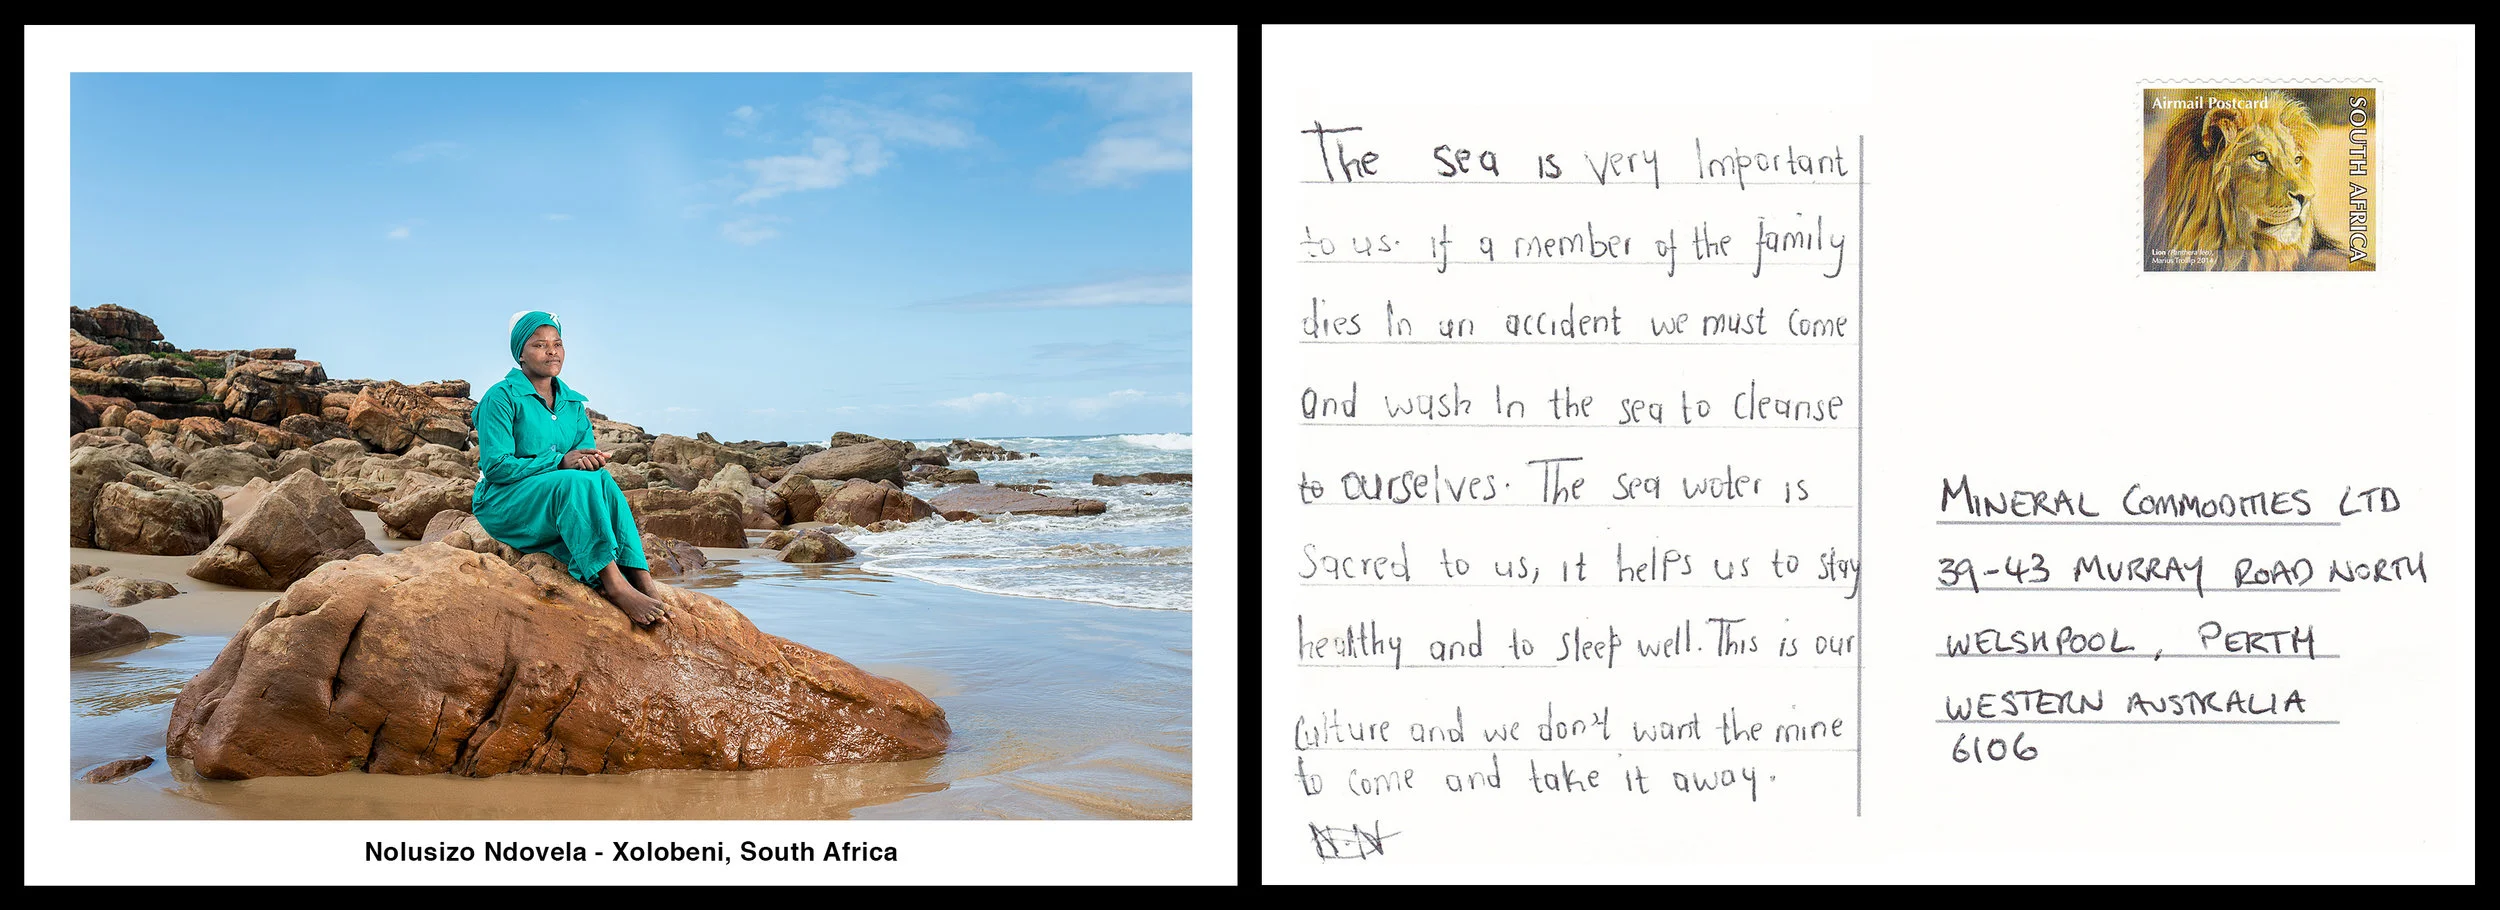 Nolusizo Ndovela - Xolobeni, South Africa
The sea is very Important
to us. if a member of the family
dies In an accident we must come
and wash In the sea to cleanse
to ourselves. The sea water is
Sacred to us, it helps us to stay
healthy and to sleep well. This is our
culture and we don't want the mine
to come and take it away.
N.N
Airmail Postcard
SOUTH AFRICA
Lion (Panthera leo),
Marius Trollip 2014
MINERAL COMMODITIES LTD
39-43 MURRAY ROAD NORTH
WELSHPOOL, PERTH
WESTERN AUSTRALIA
6106